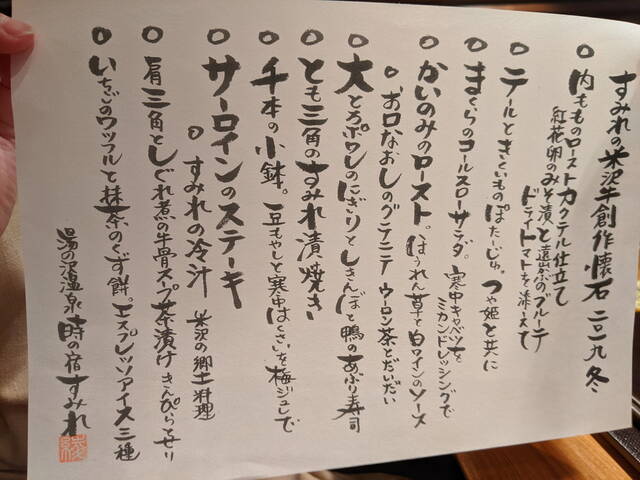 すみれの米沢牛創作懐石 二〇一九 冬
○内もものロースト カクテル仕立て
紅花卵のみそ漬と遠山かぶのブルーテ
ドライトマトを添えて
○テールときくいものぽたーじゅ。つや姫と共に
○まくらのコールスローサラダ。寒中キャベツを
ミカンドレッシングで
○かいのみのロースト。ほうれん草と白ワインのソース
○お口なおしのグラニテ ウーロン茶とだいだい
○大とろポワレのにぎりとしきんぼと鴨のあぶり寿司
○とも三角のすみれ漬焼き
○千本の小鉢。豆もやしと寒中はくさいを梅ジュレで
○サーロインのステーキ
○すみれの冷汁 米沢の郷土料理
○肩三角としぐれ煮の牛骨スープ茶漬け きんぴらせり
○いちごのワッフルと抹茶のくず餅。エスプレッソアイス三種
湯の沢温泉 時の宿 すみれ